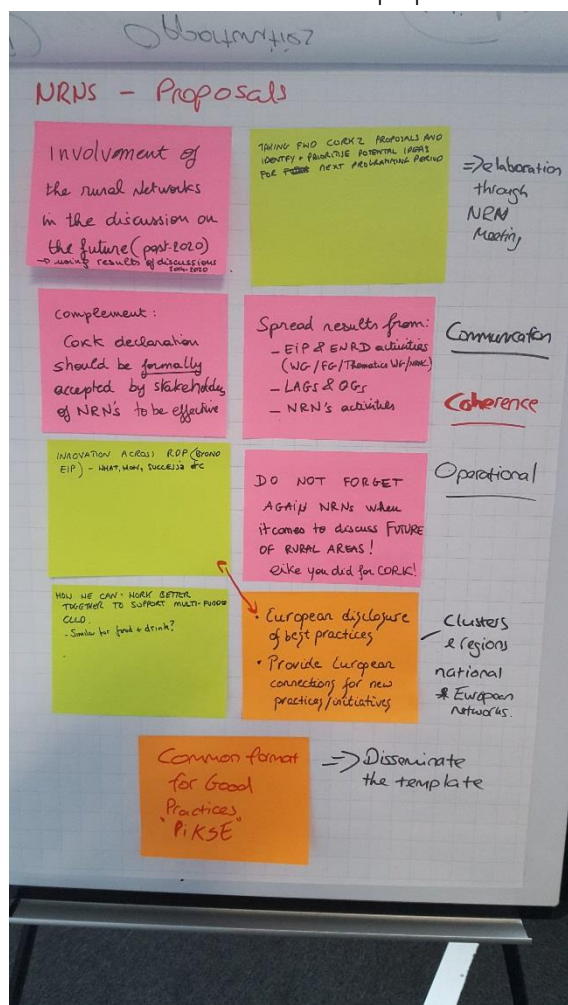 NRNS - Proposals
Involvment of
the rural Networks
in the discussion on
the future (post-2020)
→ using results of discussions
2014-2020
TAKING FWD CORK 2 PROPOSALS AND
IDENTIFY + PRIORITISE POTENTIAL IDEAS
FOR NEXT PROGRAMMING PERIOD
=> elaboration
through
NRN
Meeting
complement :
Cork declaration
should be formally
accepted by stakeholders
of NRN's to be effective
Spread results from:
- EIP & ENRD activities
(WG/FG/Thematics WG/
- LAGS & OGs
- NRN's activities
Communication
Coherence
Operational
INNOVATION ACROSS RDP (BEYOND
EIP) - WHAT, HOW, SUCCESSES etc
DO NOT FORGET
AGAIN NRNs when
it comes to discuss FUTURE
OF RURAL AREAS!
like you did for CORK!
HOW WE CAN WORK BETTER
TOGETHER TO SUPPORT MULTI-FUNDED
CLLD.
- Similar for food + drink?
• European disclosure
of best practices
• Provide European
connections for new
practices/initiatives
Clusters
& regions
national
& European
networks.
Common format
for Good
Practices
"PiKSE"
=> Disseminate
the template